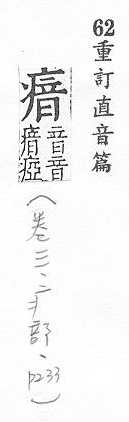 62重訂直音篇
瘖
音音
瘖瘂
（卷三、疒部、p233）